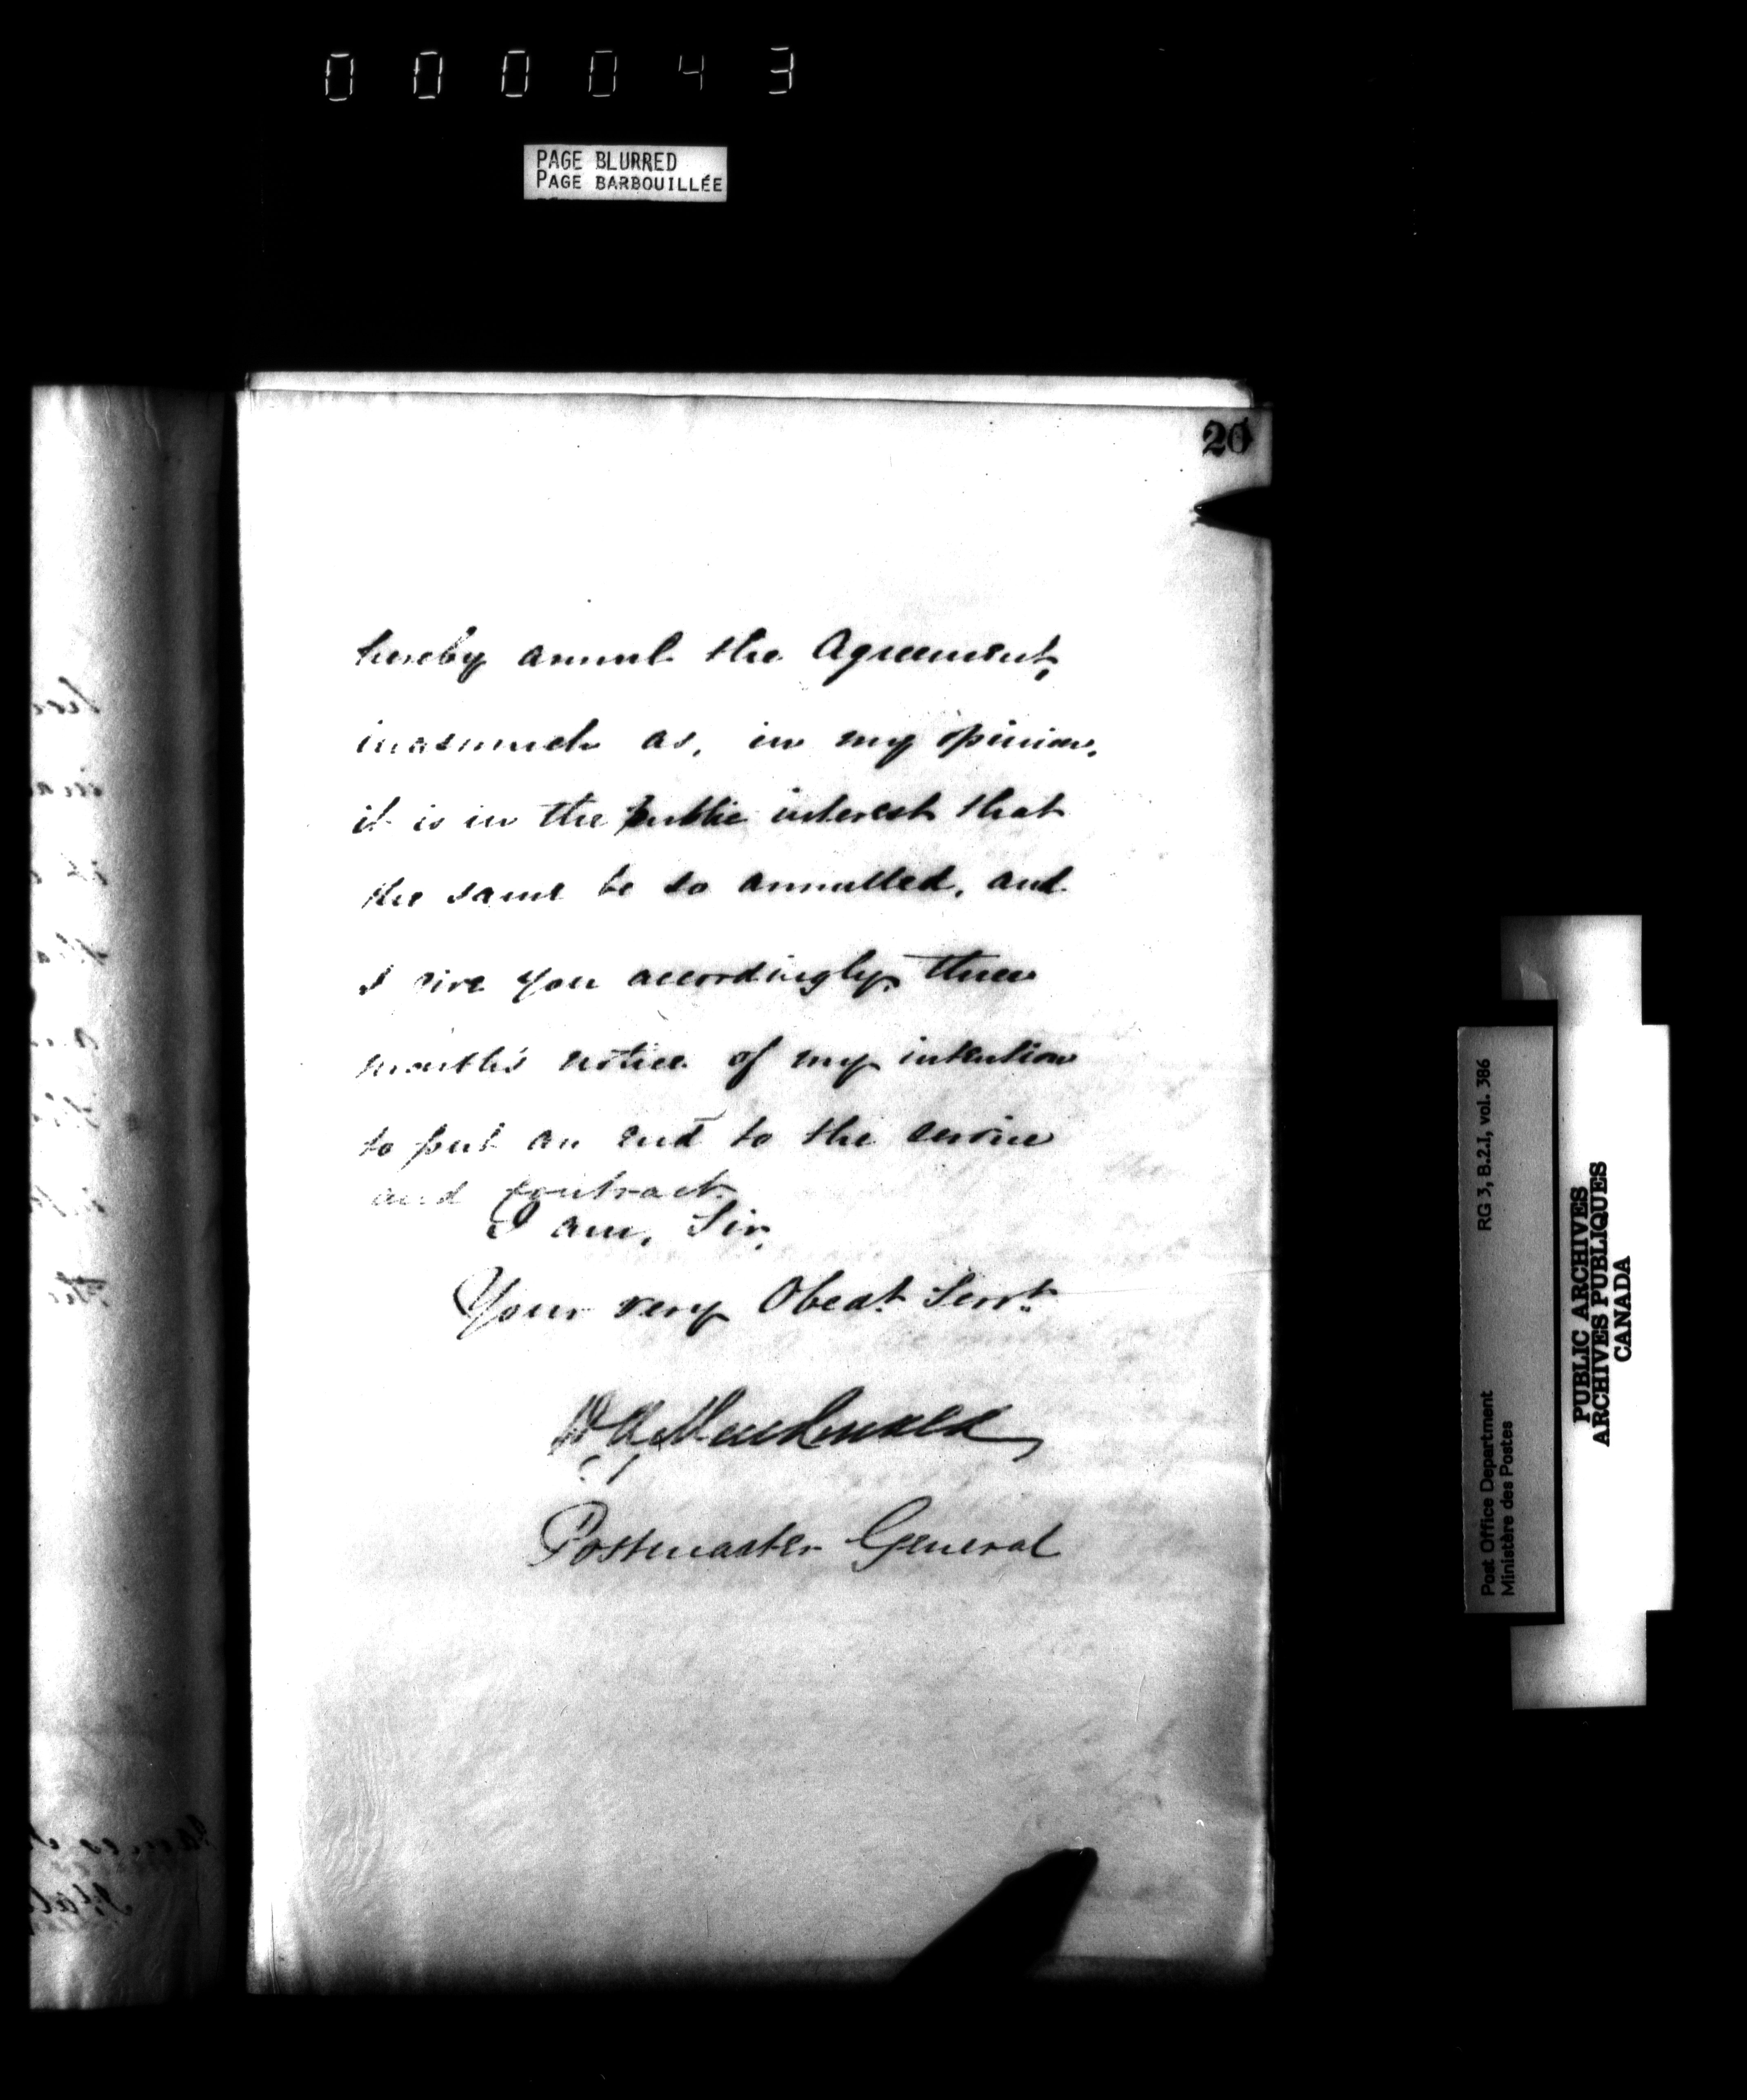 000043
PAGE BLURRED
PAGE BARBOUILLÉE
20
hereby annul the Agreement,
inasmuch as, in my opinion,
it is in the public interest that
the same be so annulled, and
I give you accordingly, three
months notice of my intention
to put an end to the service
and contract.
I am, Sir,
Your very Obedt. Servt.
D A Macdonald
Postmaster General
Post Office Department RG 3, B.2.I, vol. 386
Ministère des Postes
PUBLIC ARCHIVES
ARCHIVES PUBLIQUES
CANADA